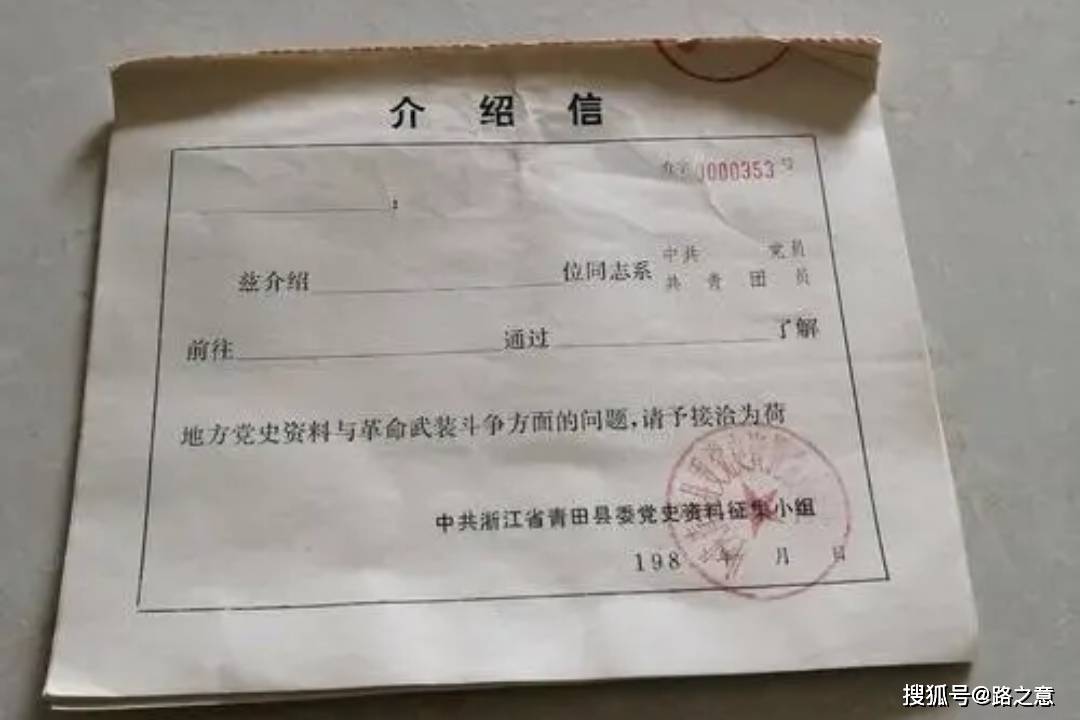 介绍信
0000353号
：
兹介绍 位同志系 中共 党员
共青团员
前往 通过 了解
地方党史资料与革命武装斗争方面的问题，请予接洽为荷
中共浙江省青田县委党史资料征集小组
198 年 月 日
搜狐号@路之意